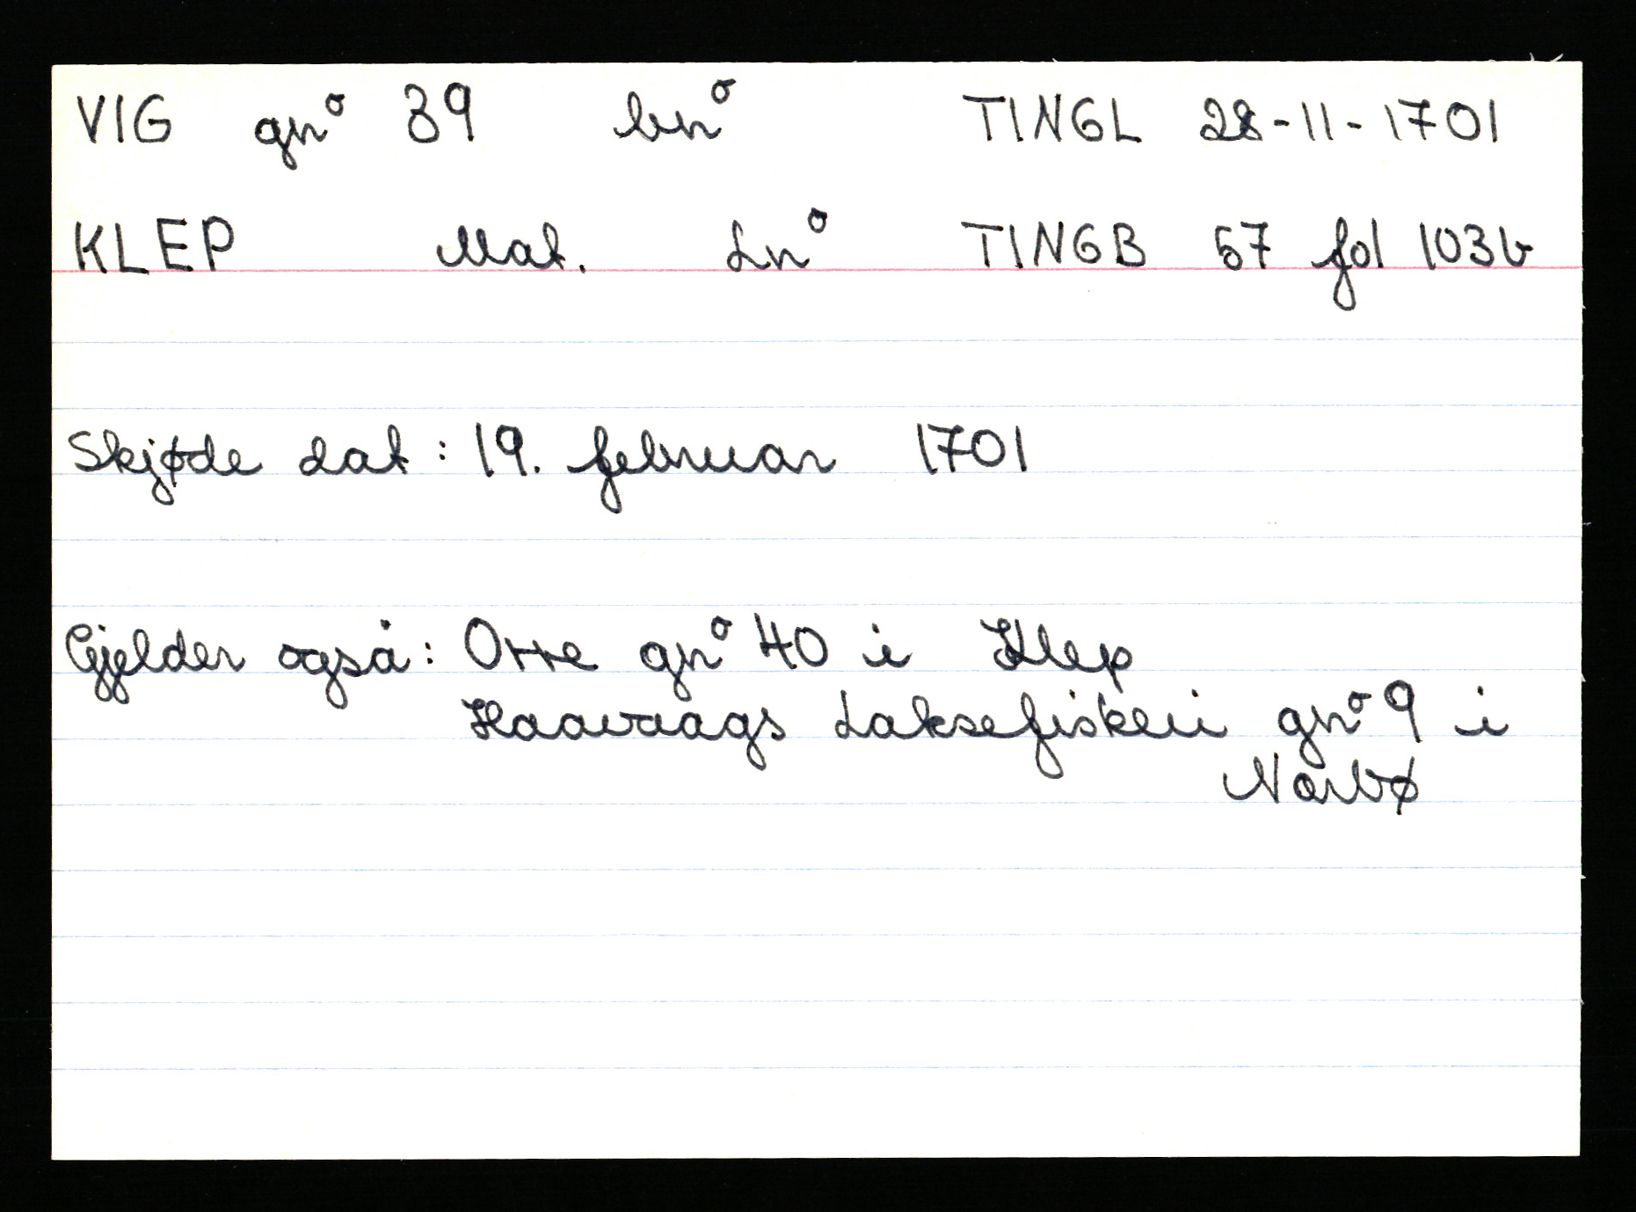 VIG gnº 39 bnº TINGL 28-11-1701
KLEP Mat. Lnº TINGB 57 fol 103b
Skjøde dat: 19. februar 1701
Gjelder også: Orre gnº 40 i Klep
Haavaags Laksefiskeri gnº 9 i
Nærbø